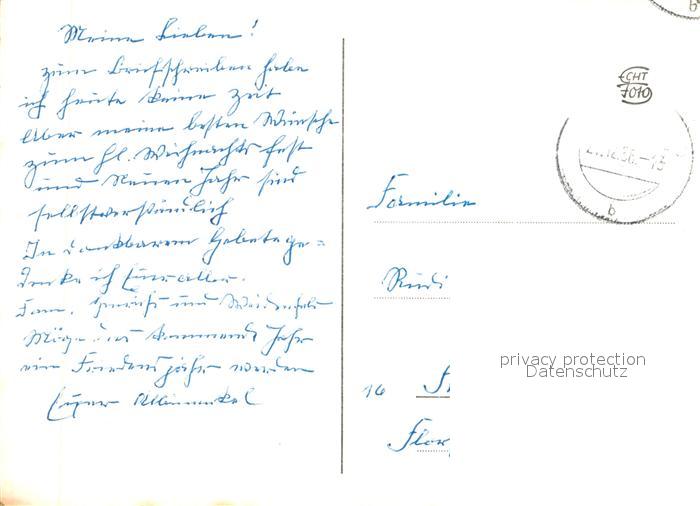 Meine Lieben!
zum Briefschreiben habe
ich heute keine Zeit
Aber meine besten Wünsche
zum hl. Weihnachtsfest
und Neuen Jahr sind
selbstverständlich
In dankbarem Gebete ge=
denke ich Eurer aller.
Fam. und
Möge das kommende Jahr
ein Friedensjahr werden
Euer
ECHT
7010
12.56.-13
b
Familie
Rudi
16
Flor
privacy protection
Datenschutz